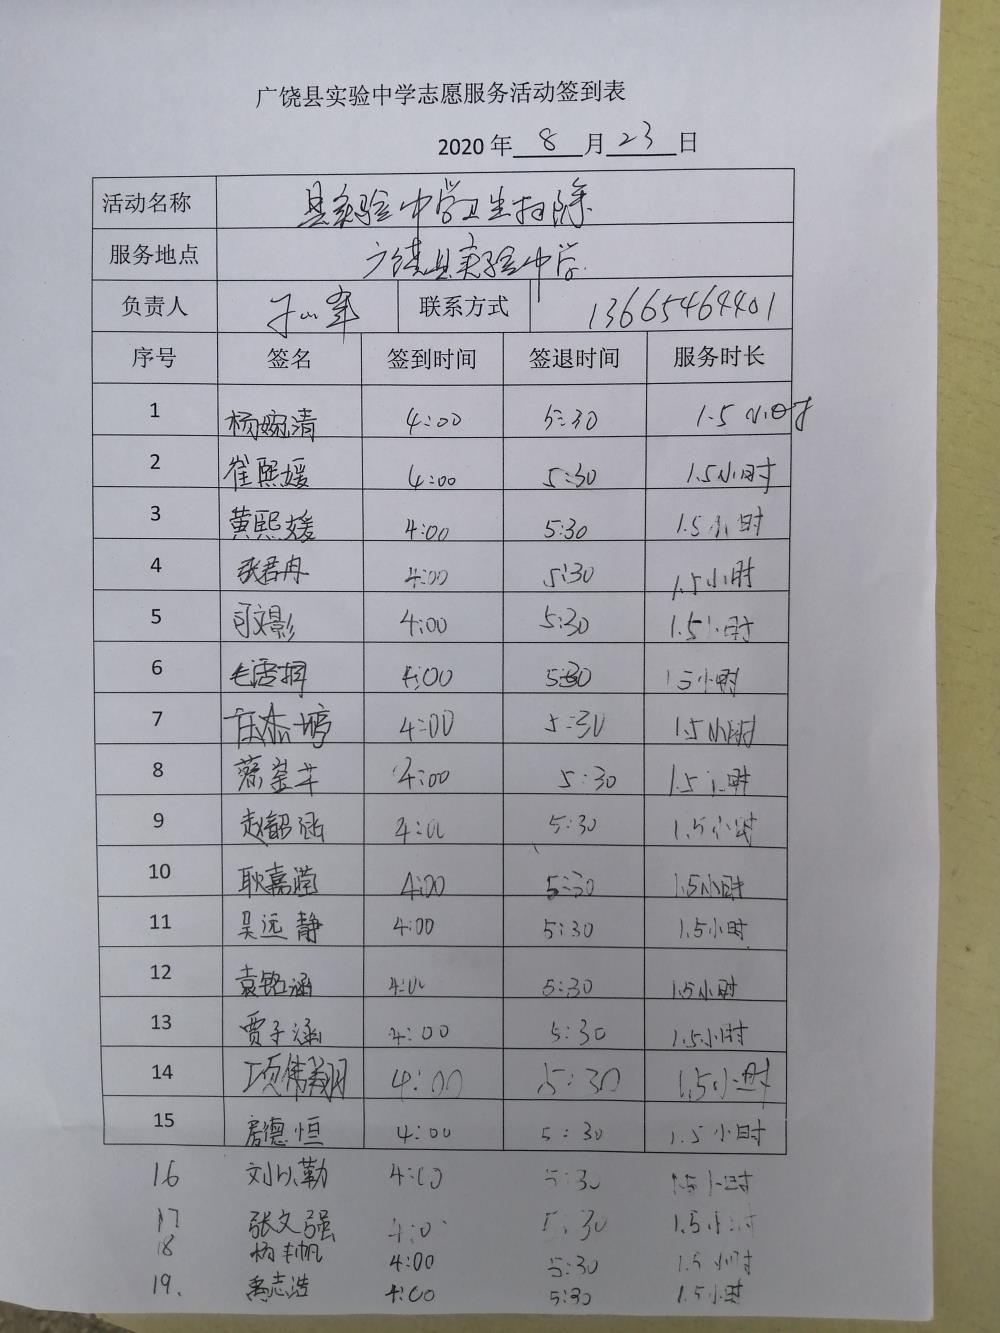 广饶县实验中学志愿服务活动签到表
2020年 8 月 23 日
活动名称 县实验中学卫生扫除
服务地点 广饶县实验中学
负责人 于山峯 联系方式 13665464401
序号 签名 签到时间 签退时间 服务时长
1 杨婉清 4:00 5:30 1.5小时
2 崔熙媛 4:00 5:30 1.5小时
3 黄熙媛 4:00 5:30 1.5小时
4 张君冉 4:00 5:30 1.5小时
5 司文影 4:00 5:30 1.5小时
6 4:00 5:30 1.5小时
7 任杰婷 4:00 5:30 1.5小时
8 4:00 5:30 1.5小时
9 赵韶涵 4:00 5:30 1.5小时
10 耿嘉 4:00 5:30 1.5小时
11 吴远静 4:00 5:30 1.5小时
12 袁铭涵 4:00 5:30 1.5小时
13 贾子涵 4:00 5:30 1.5小时
14 项伟翔 4:00 5:30 1.5小时
15 房德恒 4:00 5:30 1.5小时
16 刘以勤 4:00 5:30 1.5小时
17 张文强 4:00 5:30 1.5小时
18 杨丰帆 4:00 5:30 1.5小时
19. 禹志浩 4:00 5:30 1.5小时